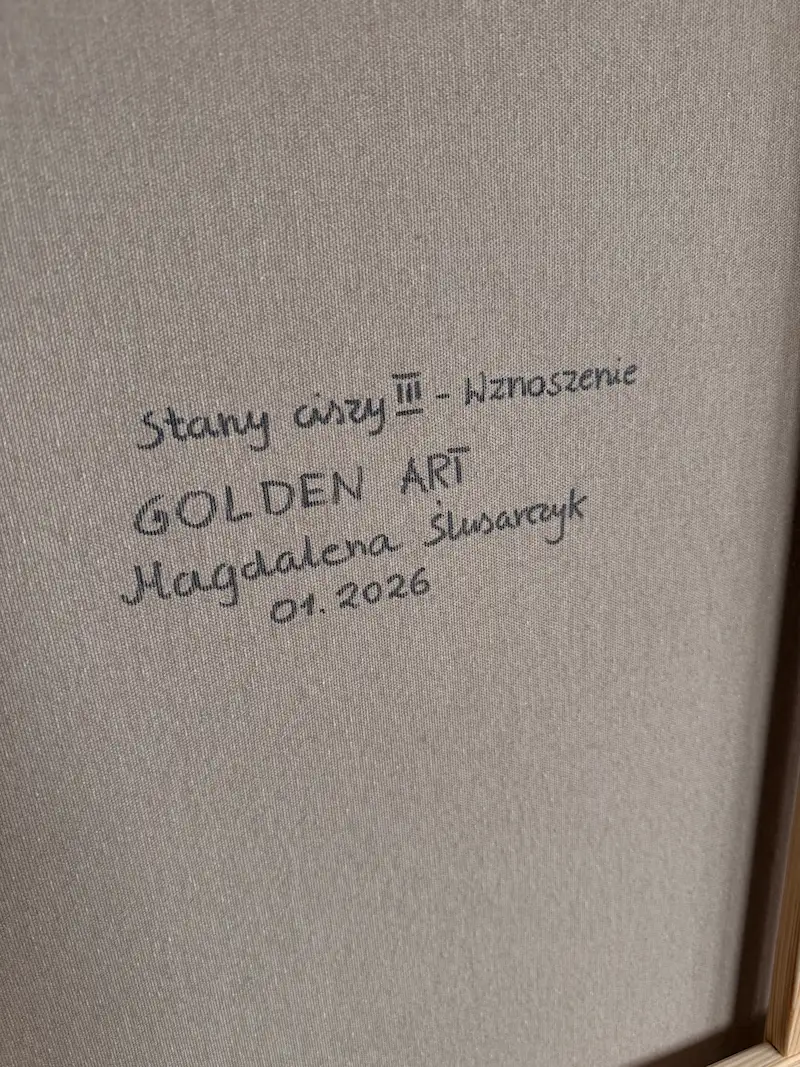 Stany ciszy III - Wznoszenie
GOLDEN ART
Magdalena Ślusarczyk
01.2026